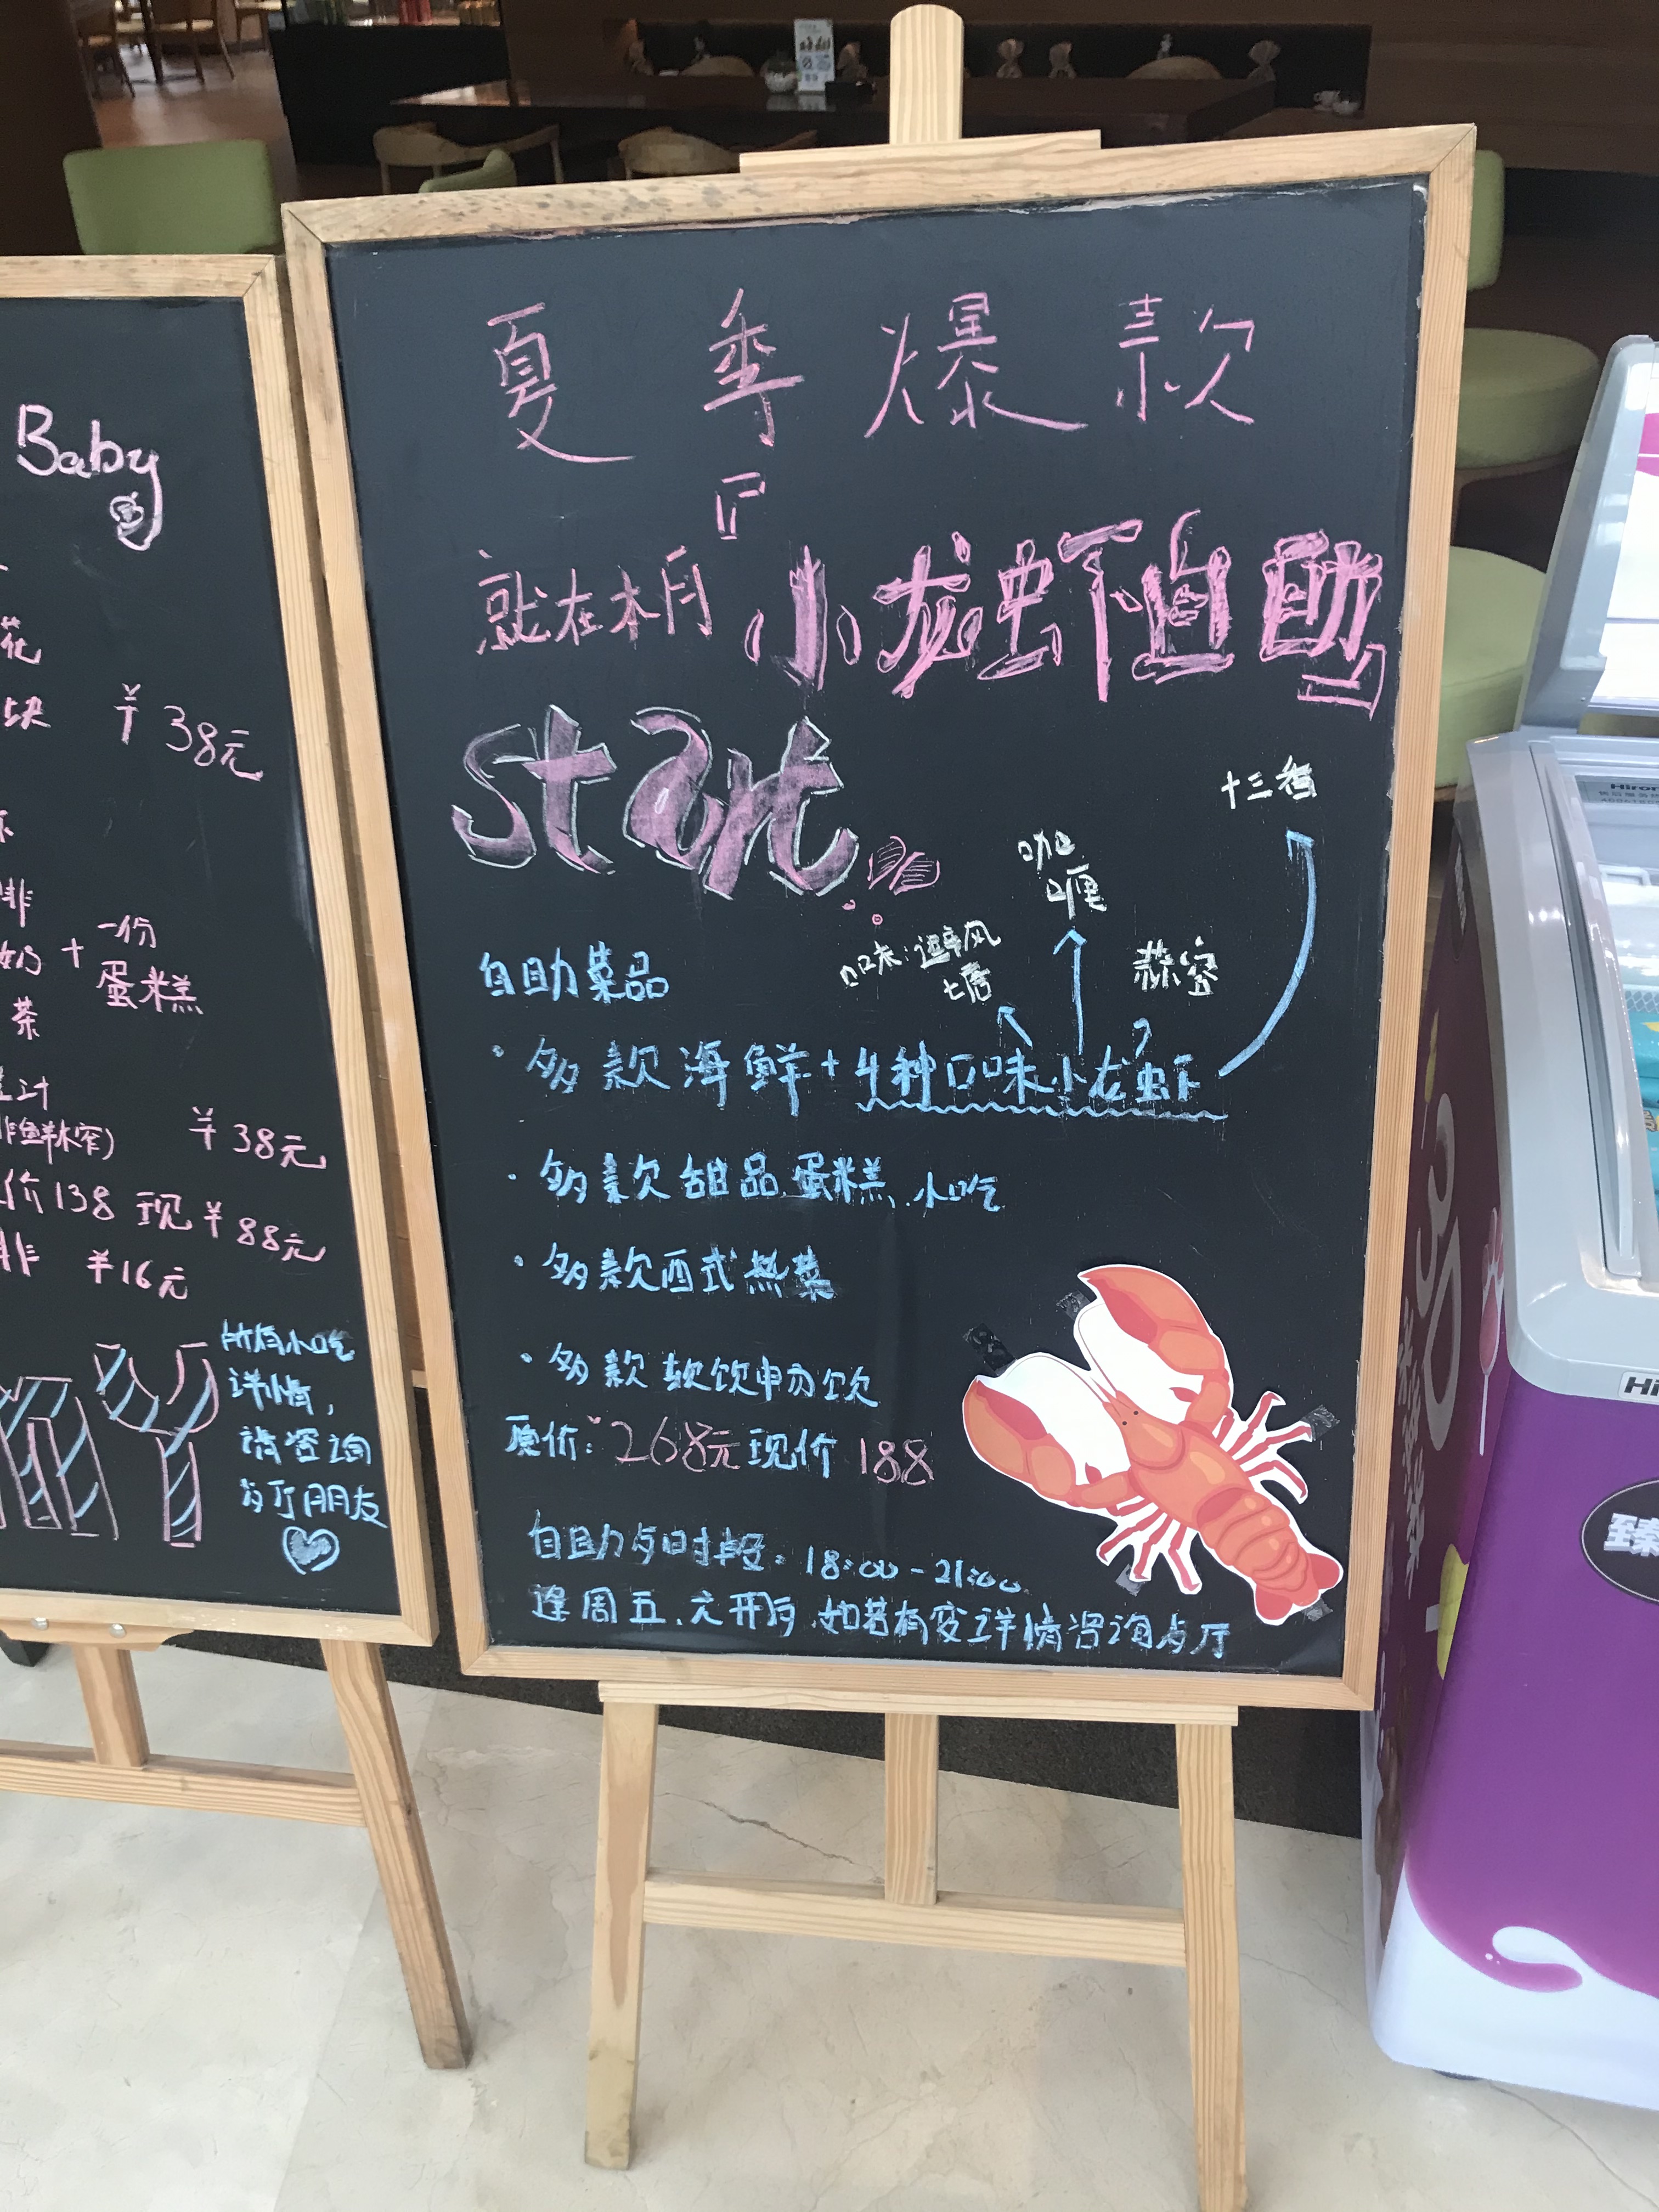 Baby
花
块 ￥38元
啡
奶 + 一份
蛋糕
茶
￥38元
价138 现￥88元
啡 ￥16元
所有小吃
详情，
请咨询
肯丁朋友
夏季爆款
就在本月『小龙虾自助』
start
十三香
咖喱
口味：避风塘
蒜蓉
自助菜品
·多款海鲜+4种口味小龙虾
·多款甜品、蛋糕、小吃
·多款西式热菜
·多款软饮申力饮
原价：268元 现价 188
自助歺时段：18:00-21:00
逢周五、六开歺、如若有变详情咨询歺厅
Hiron
Hi
臻